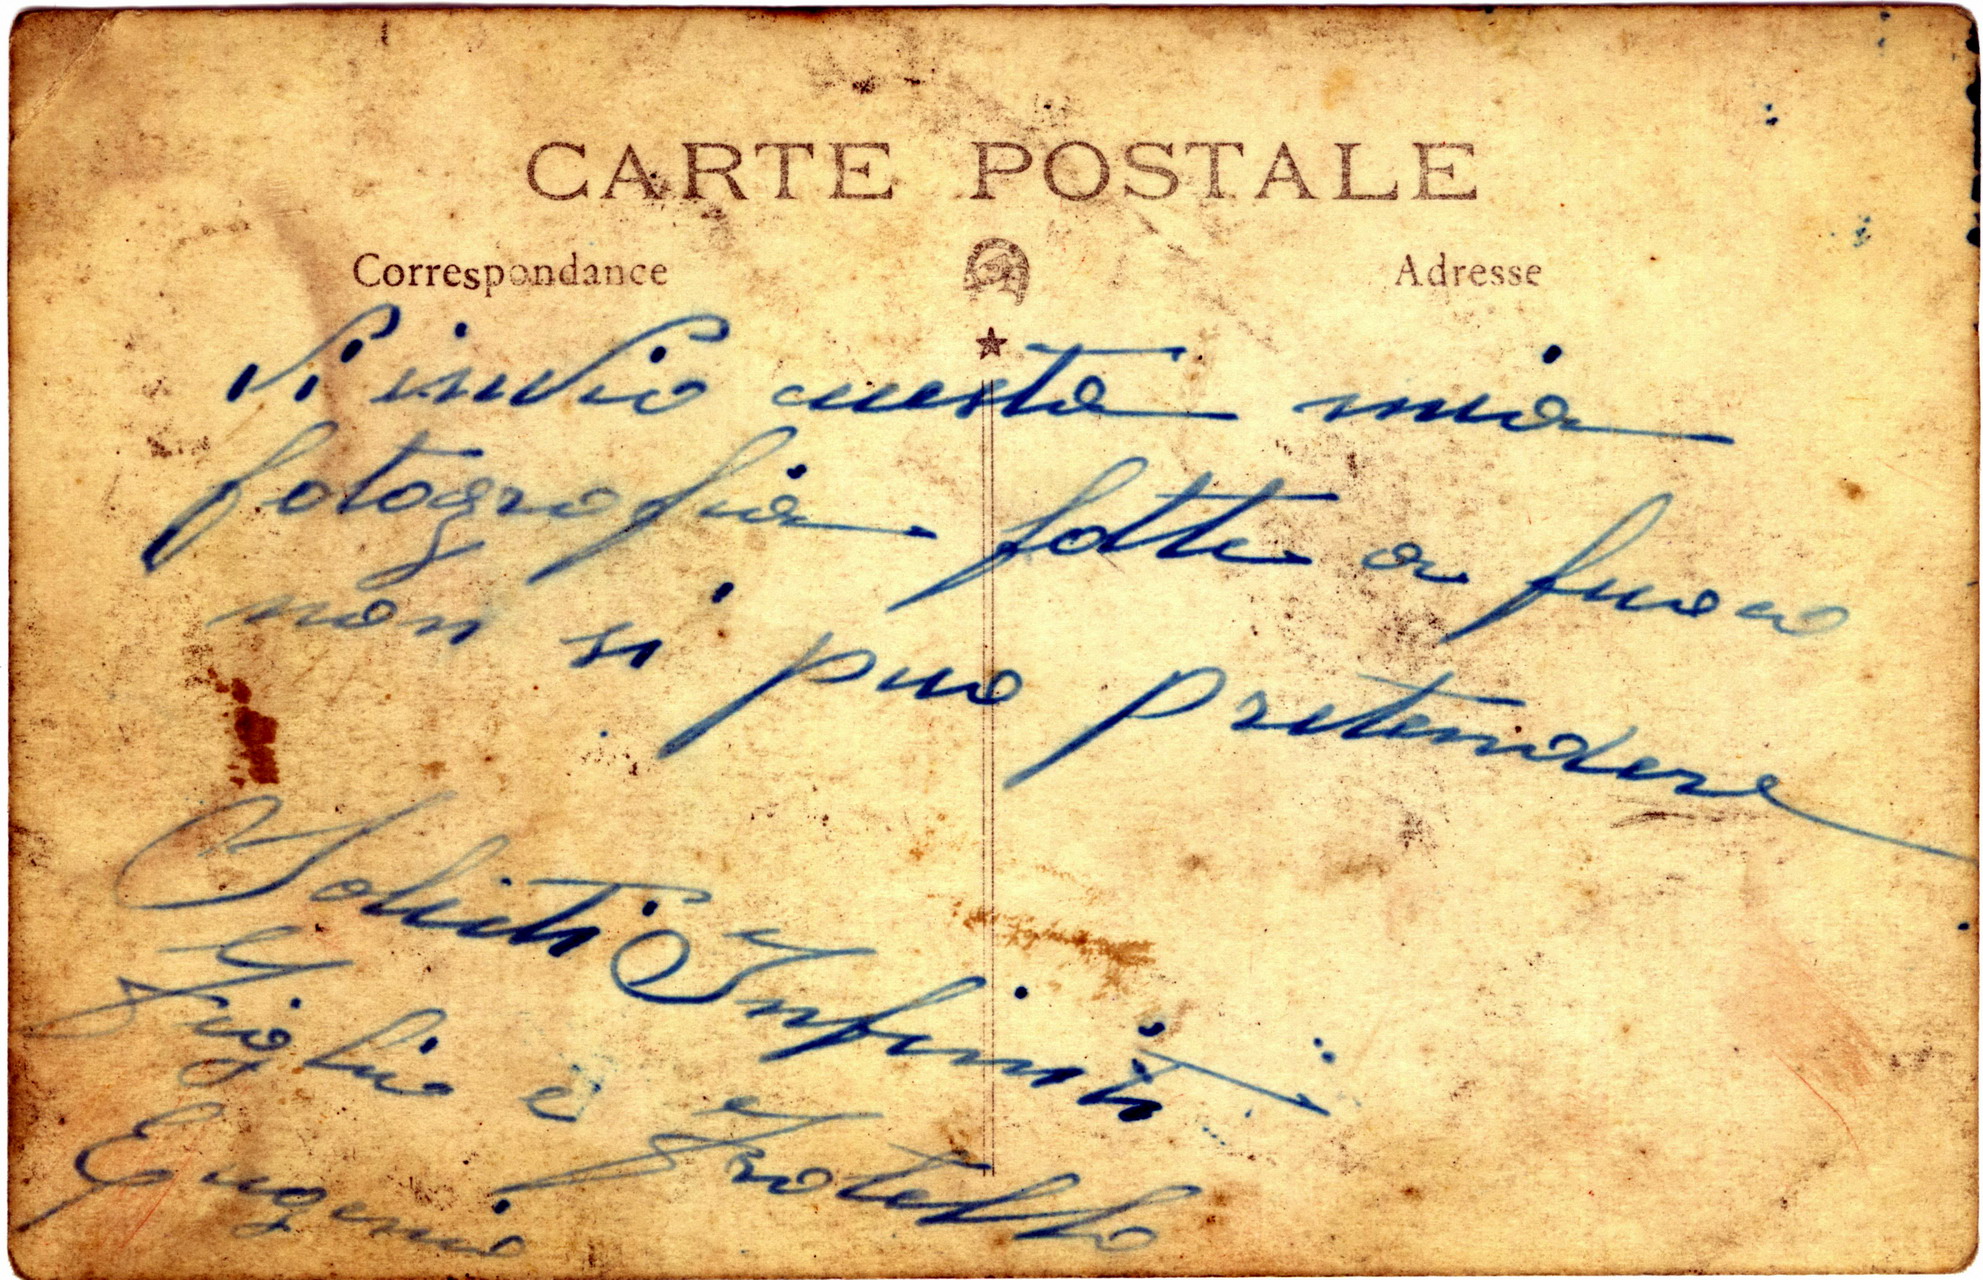 CARTE POSTALE
Correspondance Adresse
Vi invio cuesta mia
fotografia fatta a fuoco
non si puo pretendere
Soliti Infiniti
Figlio e Fratello
Eugenio